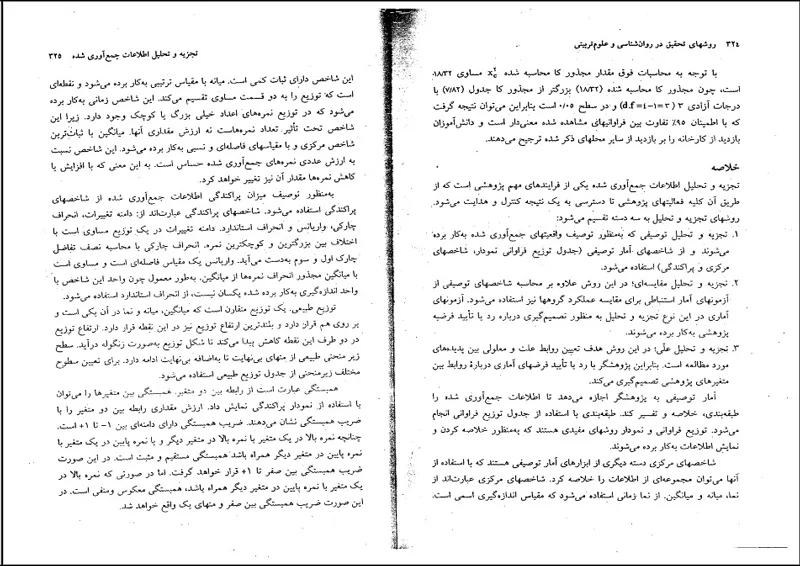 ۳۲۴ روشهای تحقیق در روان‌شناسی و علوم‌تربیتی
با توجه به محاسبات فوق مقدار مجذور کا محاسبه شده X مساوی ۱۸/۳۲
است، چون مجذور کا محاسبه شده (۱۸/۳۲) بزرگتر از مجذور کا جدول (۷/۸۲) با
درجات آزادی ۳ (۳=۱−۴=d.f) و در سطح ۰/۰۵ است بنابراین می‌توان نتیجه گرفت
که با اطمینان ۹۵٪ تفاوت بین فراوانیهای مشاهده شده معنی‌دار است و دانش‌آموزان
بازدید از کارخانه را بر بازدید از سایر محلهای ذکر شده ترجیح می‌دهند.
خلاصه
تجزیه و تحلیل اطلاعات جمع‌آوری شده یکی از فرایندهای مهم پژوهشی است که از
طریق آن کلیه فعالیتهای پژوهشی تا دسترسی به یک نتیجه کنترل و هدایت می‌شود.
روشهای تجزیه و تحلیل به سه دسته تقسیم می‌شود:
۱. تجزیه و تحلیل توصیفی که به‌منظور توصیف واقعیتهای جمع‌آوری شده به‌کار برده
می‌شوند و از شاخصهای آمار توصیفی (جدول توزیع فراوانی نمودار، شاخصهای
مرکزی و پراکندگی) استفاده می‌شود.
۲. تجزیه و تحلیل مقایسه‌ای؛ در این روش علاوه بر محاسبه شاخصهای توصیفی از
آزمونهای آمار استنباطی برای مقایسه عملکرد گروهها نیز استفاده می‌شود. آزمونهای
آماری در این نوع تجزیه و تحلیل به منظور تصمیم‌گیری درباره رد یا تأیید فرضیه
پژوهشی به‌کار برده می‌شوند.
۳. تجزیه و تحلیل علّی؛ در این روش هدف تعیین روابط علت و معلولی بین پدیده‌های
مورد مطالعه است. بنابراین پژوهشگر با رد یا تأیید فرضهای آماری دربارهٔ روابط بین
متغیرهای پژوهشی تصمیم‌گیری می‌کند.
آمار توصیفی به پژوهشگر اجازه می‌دهد تا اطلاعات جمع‌آوری شده را
طبقه‌بندی، خلاصه و تفسیر کند. طبقه‌بندی با استفاده از جدول توزیع فراوانی انجام
می‌شود. توزیع فراوانی و نمودار روشهای مفیدی هستند که به‌منظور خلاصه کردن و
نمایش اطلاعات به‌کار برده می‌شوند.
شاخصهای مرکزی دسته دیگری از ابزارهای آمار توصیفی هستند که با استفاده از
آنها می‌توان مجموعه‌ای از اطلاعات را خلاصه کرد. شاخصهای مرکزی عبارت‌اند از
نما، میانه و میانگین. از نما زمانی استفاده می‌شود که مقیاس اندازه‌گیری اسمی است.
تجزیه و تحلیل اطلاعات جمع‌آوری شده ۳۲۵
این شاخص دارای ثبات کمی است. میانه با مقیاس ترتیبی به‌کار برده می‌شود و نقطه‌ای
است که توزیع را به دو قسمت مساوی تقسیم می‌کند. این شاخص زمانی به‌کار برده
می‌شود که در توزیع نمره‌های اعداد خیلی بزرگ یا کوچک وجود دارد. زیرا این
شاخص تحت تأثیر. تعداد نمره‌هاست نه ارزش مقداری آنها. میانگین با ثبات‌ترین
شاخص مرکزی و با مقیاسهای فاصله‌ای و نسبی به‌کار برده می‌شود. این شاخص نسبت
به ارزش عددی نمره‌های جمع‌آوری شده حساس است. به این معنی که با افزایش یا
کاهش نمره‌ها مقدار آن نیز تغییر خواهد کرد.
به‌منظور توصیف میزان پراکندگی اطلاعات جمع‌آوری شده از شاخصهای
پراکندگی استفاده می‌شود. شاخصهای پراکندگی عبارت‌اند از: دامنه تغییرات، انحراف
چارکی، واریانس و انحراف استاندارد. دامنه تغییرات در یک توزیع مساوی است با
اختلاف بین بزرگترین و کوچکترین نمره. انحراف چارکی با محاسبه نصف تفاضل
چارک اول و سوم به‌دست می‌آید. واریانس یک مقیاس فاصله‌ای است و مساوی است
با میانگین مجذور انحراف نمره‌ها از میانگین. به‌طور معمول چون واحد این شاخص با
واحد اندازه‌گیری به‌کار برده شده یکسان نیست، از انحراف استاندارد استفاده می‌شود.
توزیع طبیعی. یک توزیع متقارن است که میانگین، میانه و نما در آن یکی است و
بر روی هم قرار دارد و بلندترین ارتفاع توزیع نیز در این نقطه قرار دارد. ارتفاع توزیع
در دو طرف این نقطه کاهش پیدا می‌کند تا شکل توزیع به‌صورت زنگوله درآید. سطح
زیر منحنی طبیعی از منهای بی‌نهایت تا به‌اضافه بی‌نهایت ادامه دارد. برای تعیین سطوح
مختلف زیرمنحنی از جدول توزیع طبیعی استفاده می‌شود.
همبستگی عبارت است از رابطه بین دو متغیر. همبستگی بین متغیرها را می‌توان
با استفاده از نمودار پراکندگی نمایش داد. ارزش مقداری رابطه بین دو متغیر را با
ضریب همبستگی نشان می‌دهند. ضریب همبستگی دارای دامنه‌ای بین ۱− تا ۱+ است.
چنانچه نمره بالا در یک متغیر با نمره بالا در متغیر دیگر و یا نمره پایین در یک متغیر با
نمره پایین در متغیر دیگر همراه باشد همبستگی مستقیم و مثبت است. در این صورت
ضریب همبستگی بین صفر تا ۱+ قرار خواهد گرفت. اما در صورتی که نمره بالا در
یک متغیر با نمره پایین در متغیر دیگر همراه باشد، همبستگی معکوس ومنفی است. در
این صورت ضریب همبستگی بین صفر و منهای یک واقع خواهد شد.